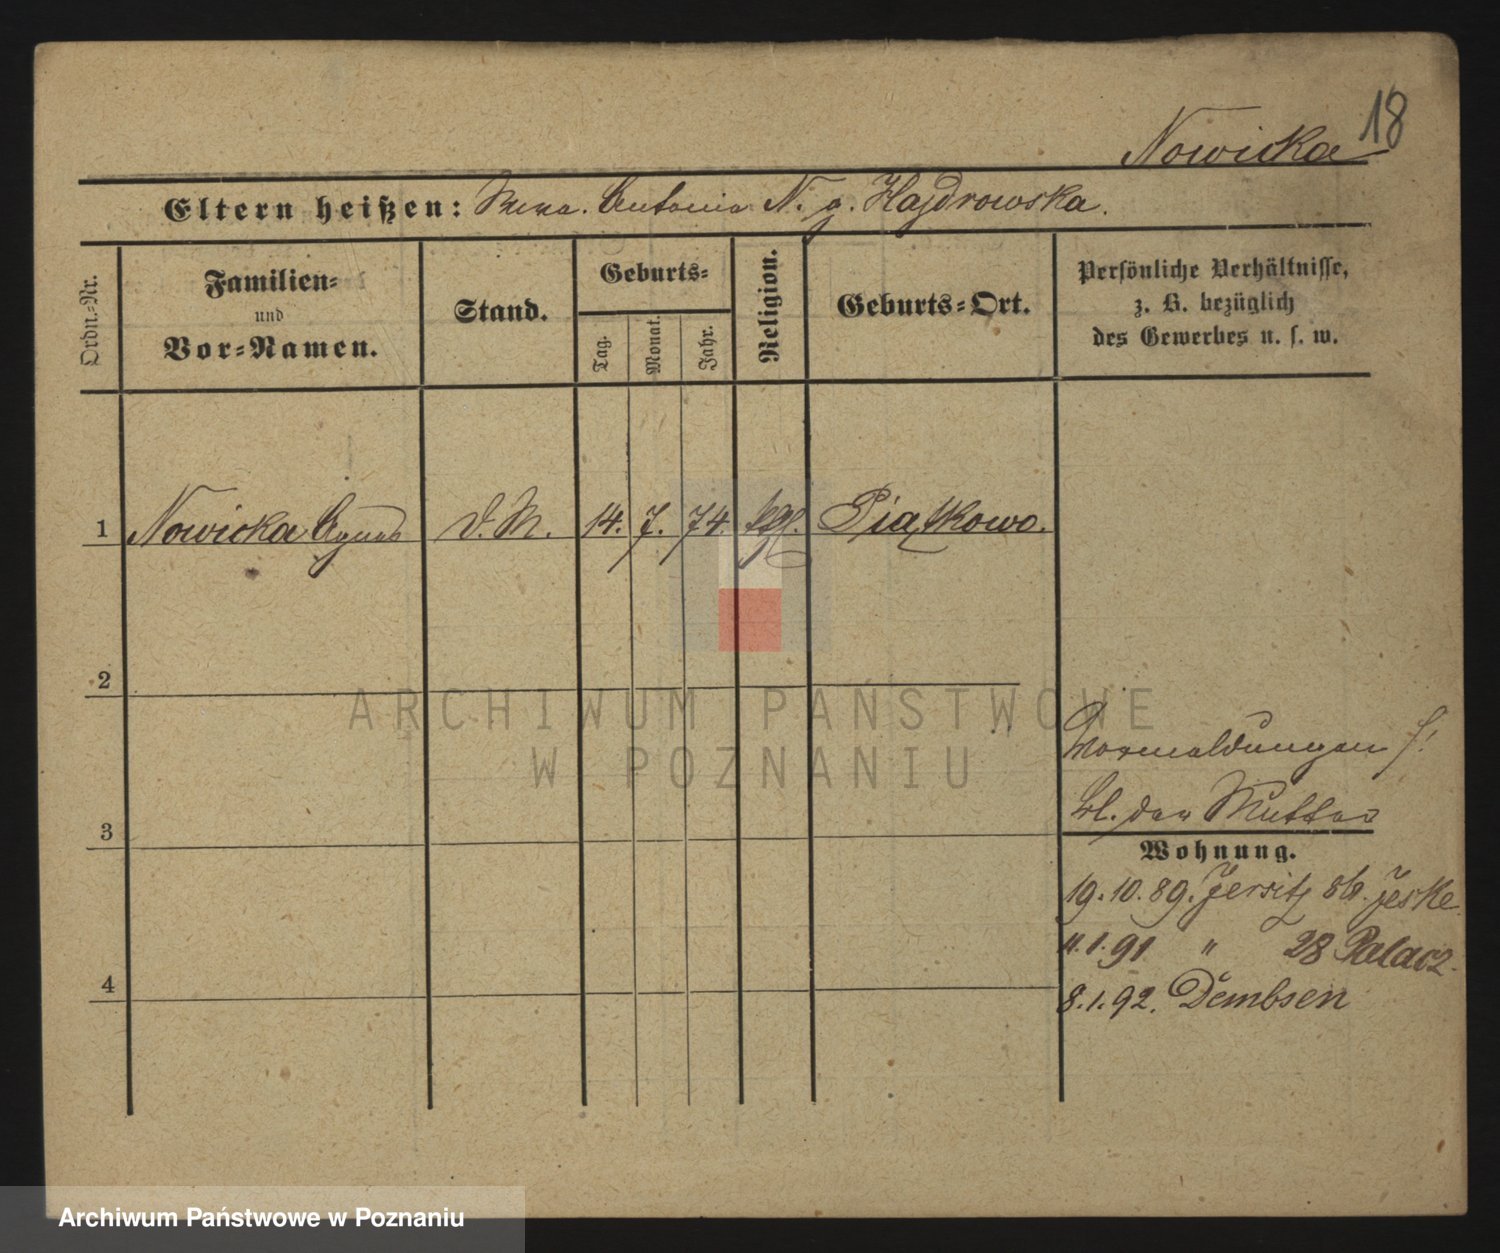 18
Nowicka
Eltern heißen: Antonia N. g. Hajdrowska.
Ordn.-Nr.
Familien-
und
Vor-Namen.
Stand.
Geburts-
Tag.
Monat.
Jahr.
Religion.
Geburts-Ort.
Persönliche Verhältnisse,
z. B. bezüglich
des Gewerbes u. s. w.
1 Nowicka Agnes D. M. 14. 7. 74. kath. Piątkowo.
2
3
4
Vormeldungen s.
Bl. der Mutter
Wohnung.
19.10.89. Jersitz 86. Jeske.
11.1.91 " 28 Palacz.
8.1.92. Dembsen
ARCHIWUM PAŃSTWOWE
W POZNANIU
Archiwum Państwowe w Poznaniu